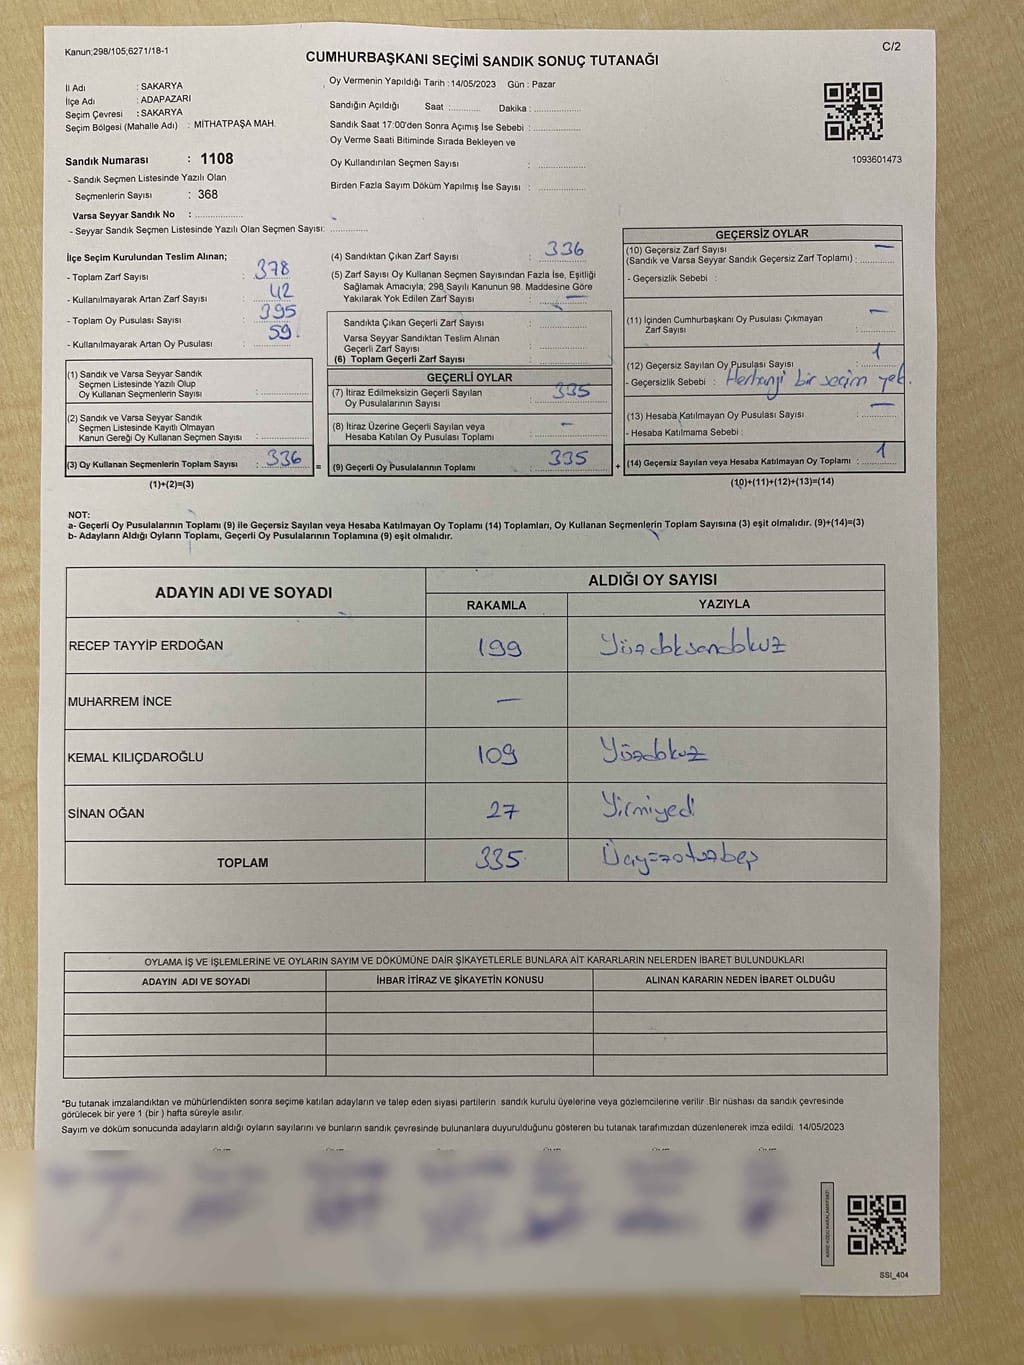 Kanun;298/105;6271/18-1
C/2
CUMHURBAŞKANI SEÇİMİ SANDIK SONUÇ TUTANAĞI
İl Adı : SAKARYA
İlçe Adı : ADAPAZARI
Seçim Çevresi : SAKARYA
Seçim Bölgesi (Mahalle Adı) : MİTHATPAŞA MAH.
Sandık Numarası : 1108
- Sandık Seçmen Listesinde Yazılı Olan
Seçmenlerin Sayısı : 368
Varsa Seyyar Sandık No : ..................
- Seyyar Sandık Seçmen Listesinde Yazılı Olan Seçmen Sayısı: ..............
Oy Vermenin Yapıldığı Tarih : 14/05/2023 Gün : Pazar
Sandığın Açıldığı Saat ............ Dakika : ..................
Sandık Saat 17:00'den Sonra Açımış İse Sebebi : ..................
Oy Verme Saati Bitiminde Sırada Bekleyen ve
Oy Kullandırılan Seçmen Sayısı : ..................
Birden Fazla Sayım Döküm Yapılmış İse Sayısı : ..................
1093601473
İlçe Seçim Kurulundan Teslim Alınan;
- Toplam Zarf Sayısı : 378
- Kullanılmayarak Artan Zarf Sayısı : 42
- Toplam Oy Pusulası Sayısı : 395
- Kullanılmayarak Artan Oy Pusulası : 59.
(1) Sandık ve Varsa Seyyar Sandık
Seçmen Listesinde Yazılı Olup
Oy Kullanan Seçmenlerin Sayısı : ..............
(2) Sandık ve Varsa Seyyar Sandık
Seçmen Listesinde Kayıtlı Olmayan
Kanun Gereği Oy Kullanan Seçmen Sayısı : ..............
(3) Oy Kullanan Seçmenlerin Toplam Sayısı : 336
(1)+(2)=(3)
(4) Sandıktan Çıkan Zarf Sayısı : 336
(5) Zarf Sayısı Oy Kullanan Seçmen Sayısından Fazla İse, Eşitliği
Sağlamak Amacıyla; 298 Sayılı Kanunun 98. Maddesine Göre
Yakılarak Yok Edilen Zarf Sayısı : —
Sandıkta Çıkan Geçerli Zarf Sayısı : ..............
Varsa Seyyar Sandıktan Teslim Alınan
Geçerli Zarf Sayısı : ..............
(6) Toplam Geçerli Zarf Sayısı : ..............
GEÇERLİ OYLAR
(7) İtiraz Edilmeksizin Geçerli Sayılan
Oy Pusulalarının Sayısı : 335
(8) İtiraz Üzerine Geçerli Sayılan veya
Hesaba Katılan Oy Pusulası Toplamı : —
= (9) Geçerli Oy Pusulalarının Toplamı : 335
GEÇERSİZ OYLAR
(10) Geçersiz Zarf Sayısı —
(Sandık ve Varsa Seyyar Sandık Geçersiz Zarf Toplamı) : ............
- Geçersizlik Sebebi :
(11) İçinden Cumhurbaşkanı Oy Pusulası Çıkmayan —
Zarf Sayısı : ............
(12) Geçersiz Sayılan Oy Pusulası Sayısı : 1
- Geçersizlik Sebebi : Herhangi bir seçim yok.
(13) Hesaba Katılmayan Oy Pusulası Sayısı : —
- Hesaba Katılmama Sebebi :
+ (14) Geçersiz Sayılan veya Hesaba Katılmayan Oy Toplamı : 1
(10)+(11)+(12)+(13)=(14)
NOT:
a- Geçerli Oy Pusulalarının Toplamı (9) ile Geçersiz Sayılan veya Hesaba Katılmayan Oy Toplamı (14) Toplamları, Oy Kullanan Seçmenlerin Toplam Sayısına (3) eşit olmalıdır. (9)+(14)=(3)
b- Adayların Aldığı Oyların Toplamı, Geçerli Oy Pusulalarının Toplamına (9) eşit olmalıdır.
ADAYIN ADI VE SOYADI ALDIĞI OY SAYISI
RAKAMLA YAZIYLA
RECEP TAYYİP ERDOĞAN 199 Yüzdoksandokuz
MUHARREM İNCE —
KEMAL KILIÇDAROĞLU 109 Yüzdokuz
SİNAN OĞAN 27 Yirmiyedi
TOPLAM 335 Üçyüzotuzbeş
OYLAMA İŞ VE İŞLEMLERİNE VE OYLARIN SAYIM VE DÖKÜMÜNE DAİR ŞİKAYETLERLE BUNLARA AİT KARARLARIN NELERDEN İBARET BULUNDUKLARI
ADAYIN ADI VE SOYADI İHBAR İTİRAZ VE ŞİKAYETİN KONUSU ALINAN KARARIN NEDEN İBARET OLDUĞU
*Bu tutanak imzalandıktan ve mühürlendikten sonra seçime katılan adayların ve talep eden siyasi partilerin sandık kurulu üyelerine veya gözlemcilerine verilir .Bir nüshası da sandık çevresinde
görülecek bir yere 1 (bir ) hafta süreyle asılır.
Sayım ve döküm sonucunda adayların aldığı oyların sayılarını ve bunların sandık çevresinde bulunanlara duyurulduğunu gösteren bu tutanak tarafımızdan düzenlenerek imza edildi. 14/05/2023
SSI_404